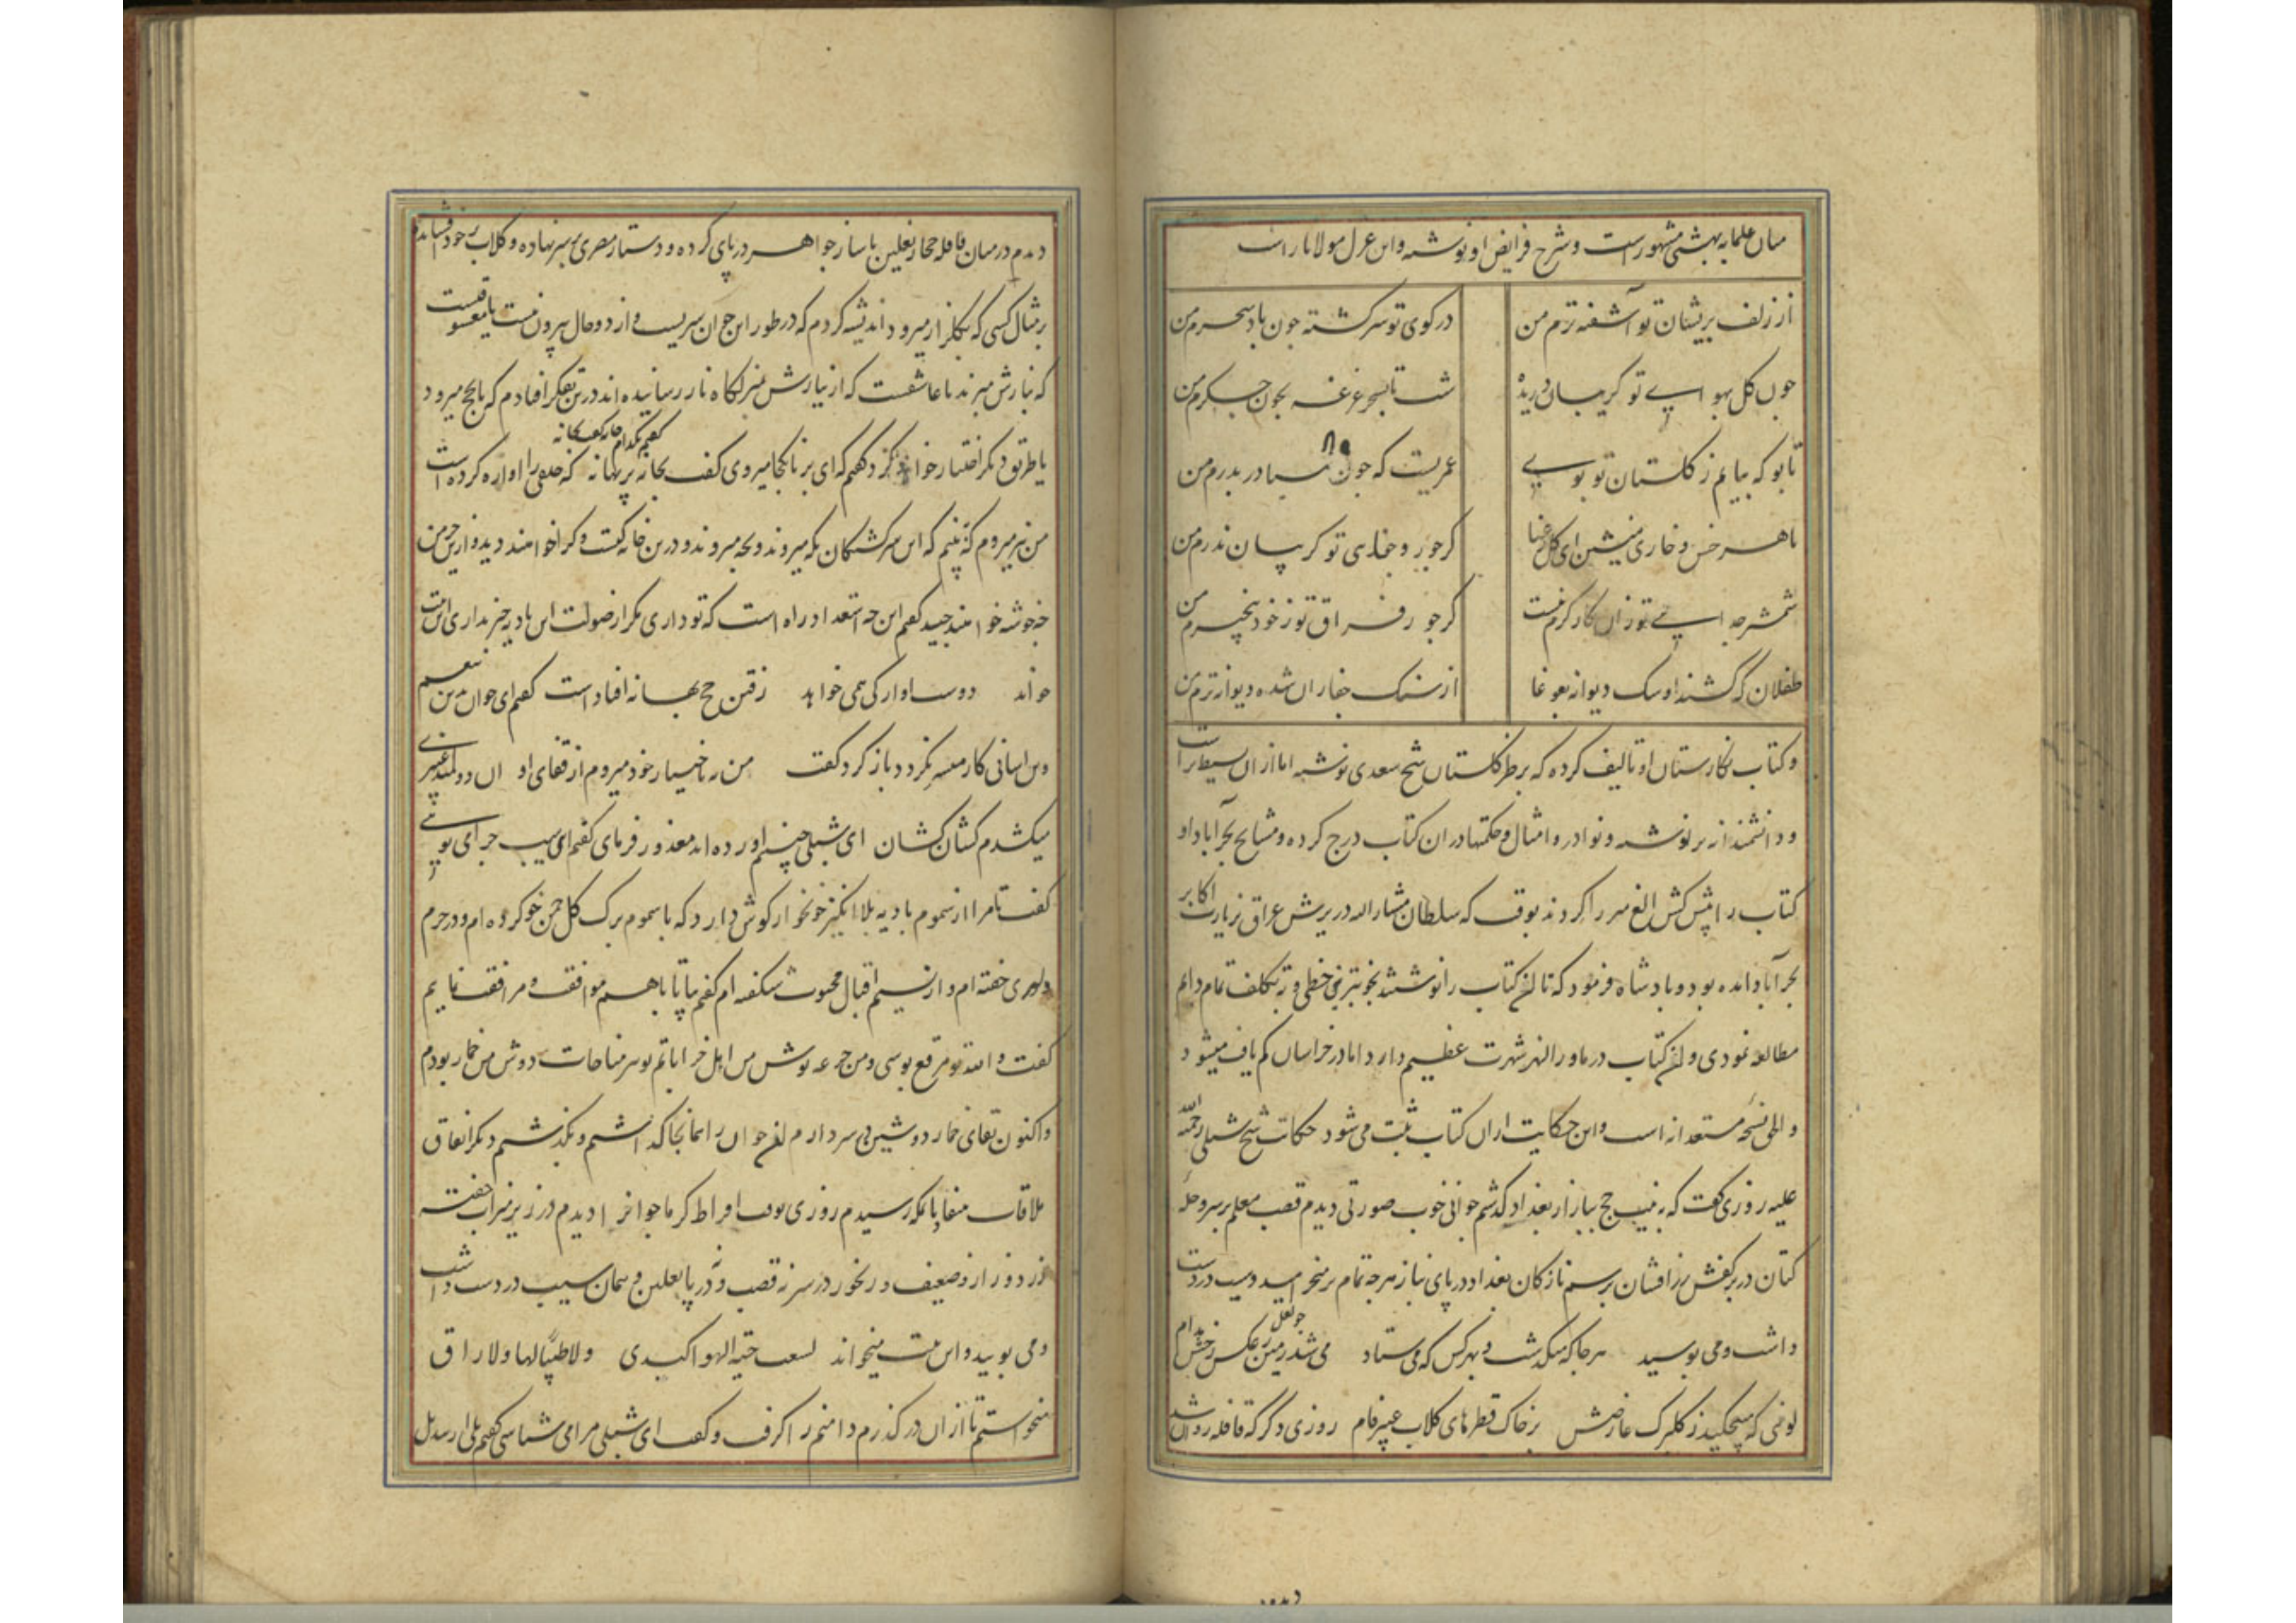 میان علما به بهشتی مشهور است و شرح فرایض او نوشته و این غزل مولانا راست
از زلف پریشان تو آشفته ترم من در کوی تو سرگشته چون باد سحرم من
چون گل بهوای تو گریبان دریده شب تا بسحر غرقه بخون جگرم من
تا بو که بیابم ز گلستان تو بویی عمریست که چون صبا در بدرم من
با هر خس و خاری منشین ای گل رعنا کر جور و جفای تو گریبان ندرم من
گر جور فراق تو ز خود بیخبرم من
طفلان که کشند او سنگ دیوانه بغوغا از سنگ جفاران شده دیوانه ترم من
و کتاب نگارستان او تالیف کرده که بر طرز گلستان شیخ سعدی نوشته اما از آن بسیط تر است
و دانشمندانه تر نوشته و نوادر و امثال و حکمتها در آن کتاب درج کرده و مشایخ بحرآباد او
کتاب را پیش کش الغ میرزا کردند بوقت که سلطان مشار الیه در یرش عراق زیارت اکابر
بحرآباد آمده بود و پادشاه فرمود که تا این کتاب را نوشتند بخوبترین خطی و تکلف تمام دایم
مطالعه نمودی و این کتاب در ماورا النهر شهرت عظیم دارد اما در خراسان کم یافت میشود
و الحق نسخه مستعدانه است و این حکایت از آن کتاب ثبت می شود حکایت شیخ شبلی رحمة الله
علیه روزی گفت که به نیت حج ببازار بغداد گذشتم جوانی خوب صورتی دیدم قصب معلم بر سر و حله
کتان در بر کفش زرافشان برسم نازکان بغداد در پای بناز هرچه تمام تر میخرامید و سیب در دست
داشت و می بوسید هر جا که میگذشت و بهر کس که می ستاد می شد زمین ز عکس رخش چو لعل مدام
لونی که میچکید ز گلبرگ عارضش بر خاک قطرهای گلاب عبیر فام روزی دگر که قافله روان شد
دیدم در میان قافله حجاز نعلین باساز جواهر در پای کرده و دستار مصری بر سر نهاده و گلاب بر خود فشانده
بر مثال کسی که بگلزار میرود اندیشه کردم که در طور این جوان سریست و از دو حال بیرون نیست یا معشوقیست
که بنازش میبرند یا عاشقست که از نیازش بمنزلگاه ناز رسانیده اند درین تفکر افتادم که بحج میرود
یا طریق دیگر اختیار خواهد کرد گفتم که ای برنا بکجا میروی گفت بخانه گفتم بکدام خانه گفت خانه پر بهانه که خلقی را آواره کرده است
من نیز میروم که ببینم که این سرگشتگان بکه میروند و بچه میروند و درین خانه کیست و کرا خواهند دید و ازین خرمن
چه خوشه خواهند چید گفتم این چه استعداد راه است که تو داری مگر از صولت این بادیه خبر نداری این بیت
خواند دوست آوارگی همی خواهد رفتن حج بهانه افتاد است گفتم ای جوان بدین تنعم
و تن آسانی کار میسر نگردد باز گرد گفت من نه باختیار خود میروم از قفای او آن دو کمند عنبری
میکشدم کشان کشان ای شبلی چنینم آورده اند معذور فرمای گفتم این سیب چرا می بویی
گفت تا مرا از سموم بادیه بلا انگیز خونخوار گوش دارد که با سموم برگ گل چمن خو کرده ام و در حرم
دلبری خفته ام و از نسیم اقبال محبوب شکفته ام گفتم بیا تا با هم موافقت و مرافقت نمایم
گفت و الله تو مرقع پوشی و من جرعه نوش من اهل خراباتم تو سر مناجات دوش من خمار بودم
و اکنون بقای خمار دوشین در سر دارم این جوان را همانجا گذاشتم و بگذشتم و دیگر اتفاق
ملاقات نیفتاد تا بمکه رسیدم روزی بوقت افراط گرما جوانرا دیدم در زیر میزاب خفته
زرد و زار و ضعیف و رنجور در سر نه قصب و نه در پا نعلین و همان سیب در دست داشت
و می بویید و این بیت میخواند لسعت حیة الهوا کبدی ولا طبیب لها ولا راق
میخواستم تا از آن درگذرم دامنم را گرفت و گفت ای شبلی مرا می شناسی گفتم بلی